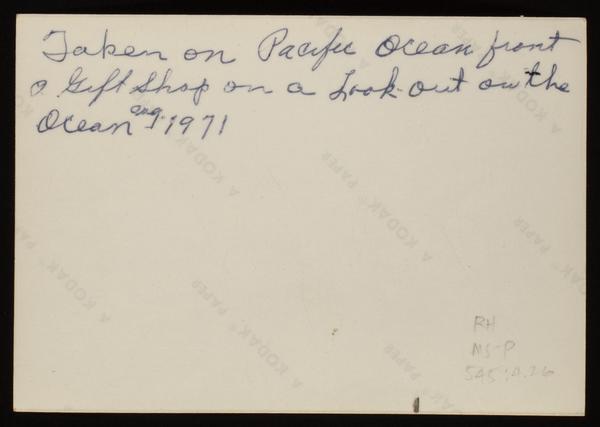 Taken on Pacific Ocean front
a Gift Shop on a Look-out on the
Ocean Aug. 1971
A KODAK® PAPER
A KODAK® PAPER
A KODAK® PAPER
A KODAK® PAPER
A KODAK® PAPER
RH
MS-P
545:A.26